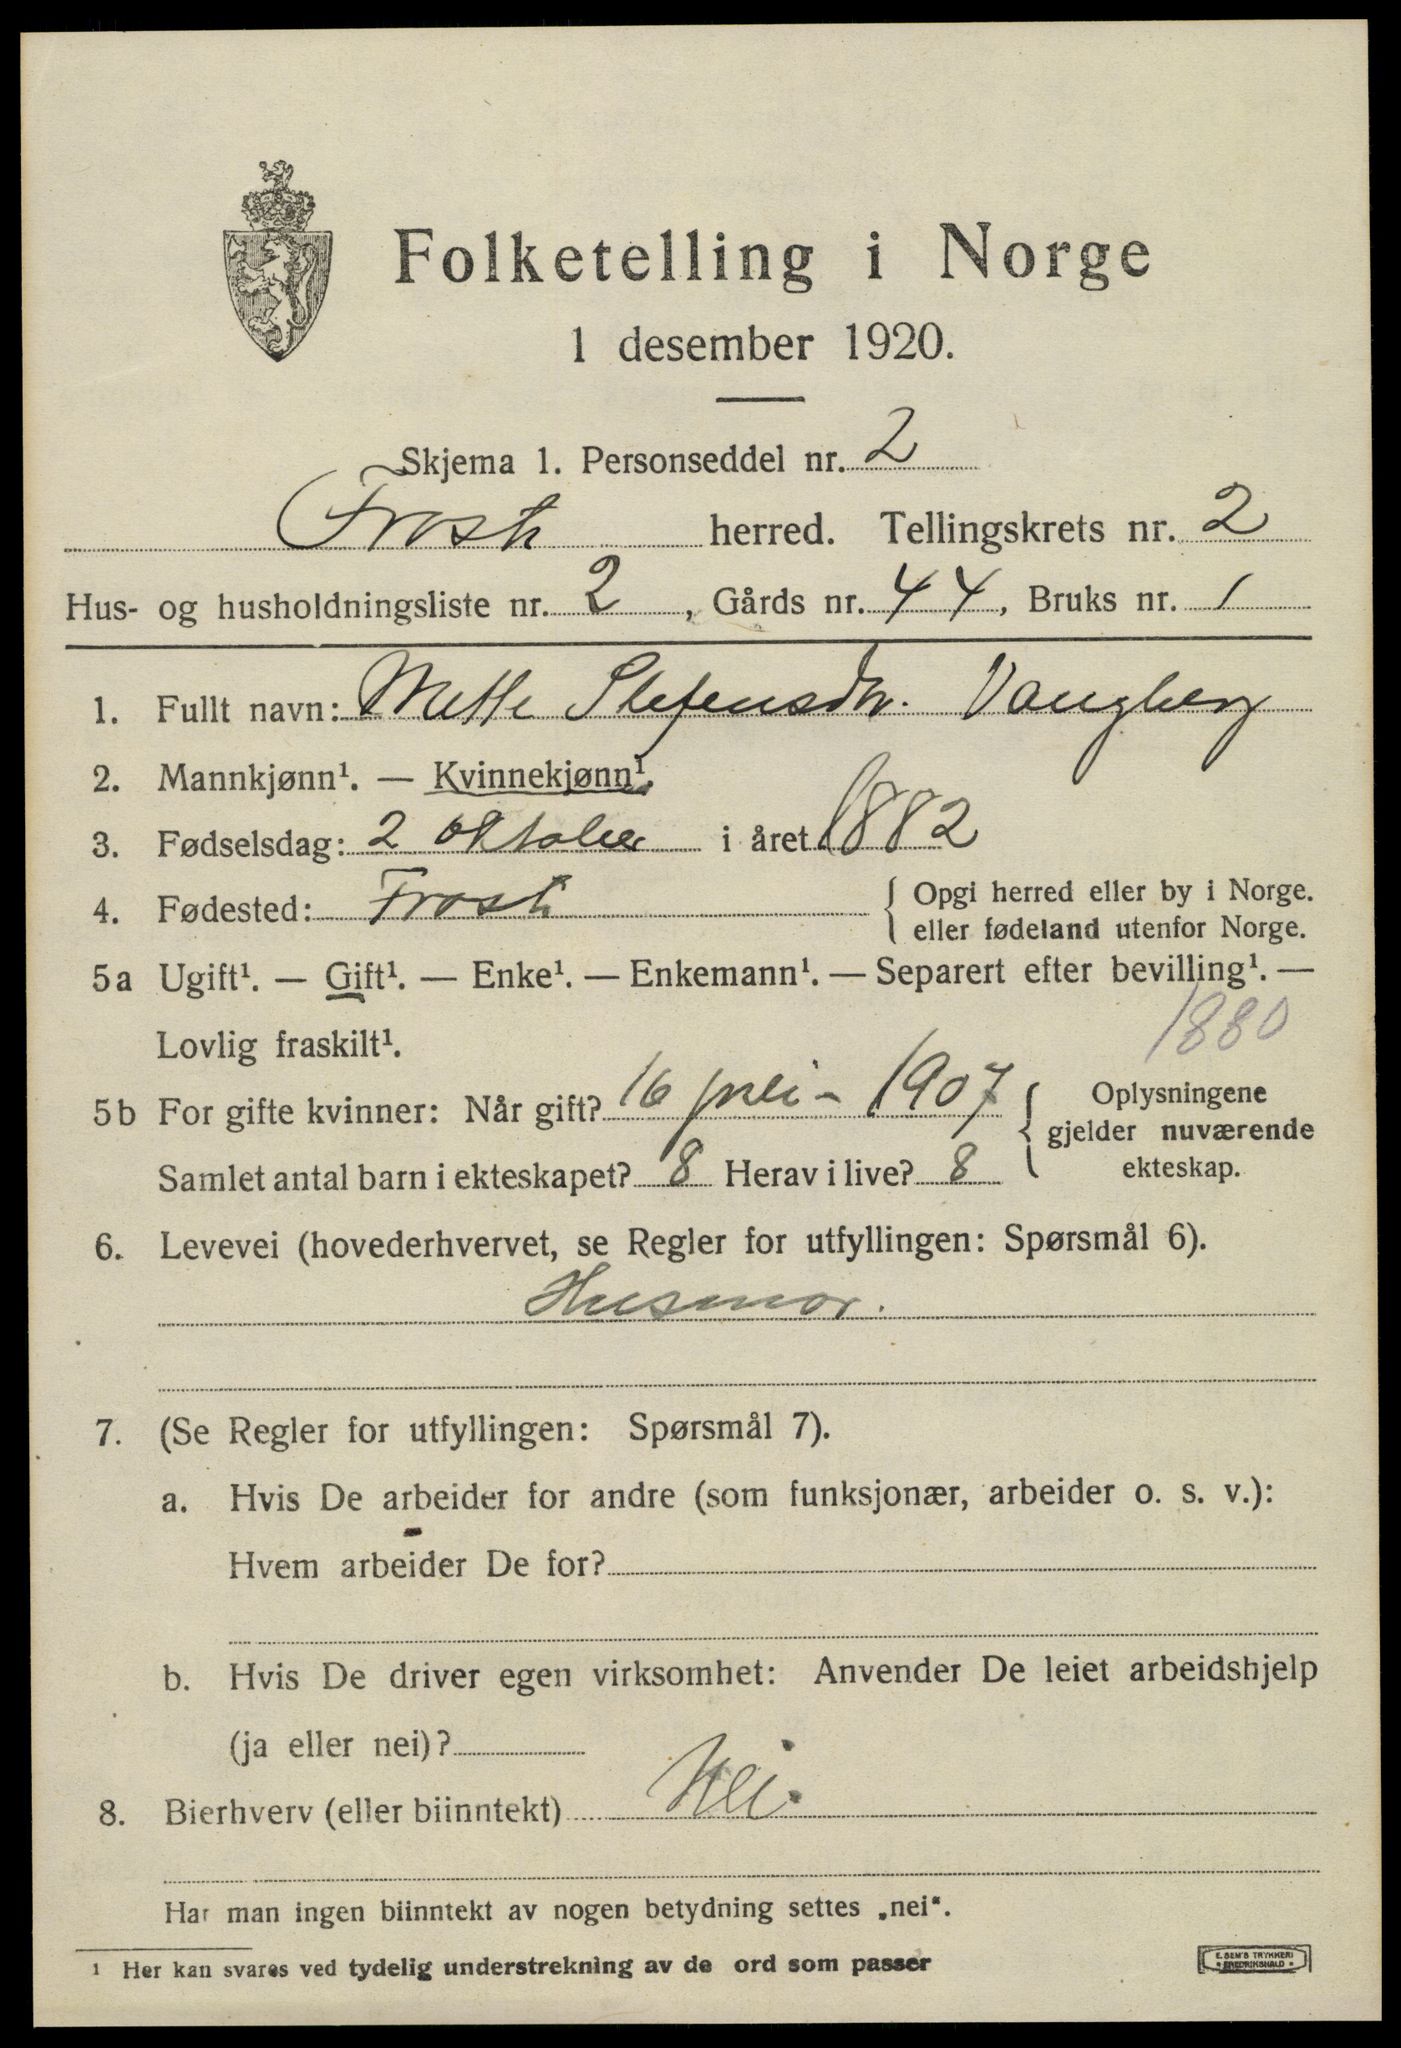 Folketelling i Norge
1 desember 1920.
Skjema 1. Personseddel nr. 2
Frosta herred. Tellingskrets nr. 2
Hus- og husholdningsliste nr. 2, Gårds nr. 44, Bruks nr. 1
1. Fullt navn: Mette Stefensdtr. Vangberg
2. Mannkjønn¹. — Kvinnekjønn¹.
3. Fødselsdag: 2 oktober i året 1882
4. Fødested: Frosta { Opgi herred eller by i Norge.
eller fødeland utenfor Norge.
5a Ugift¹. — Gift¹. — Enke¹. — Enkemann¹. — Separert efter bevilling¹. —
Lovlig fraskilt¹. 1880
5b For gifte kvinner: Når gift? 16 - 1907 { Oplysningene
gjelder nuværende
ekteskap.
Samlet antal barn i ekteskapet? 8 Herav i live? 8
6. Levevei (hovederhvervet, se Regler for utfyllingen: Spørsmål 6).
Husmor.
7. (Se Regler for utfyllingen: Spørsmål 7).
a. Hvis De arbeider for andre (som funksjonær, arbeider o. s. v.):
Hvem arbeider De for?
b. Hvis De driver egen virksomhet: Anvender De leiet arbeidshjelp
(ja eller nei)?
8. Bierhverv (eller biinntekt) Nei.
Har man ingen biinntekt av nogen betydning settes „nei“.
¹ Her kan svares ved tydelig understrekning av de ord som passer
E. SEM'S TRYKKERI
FREDRIKSHALD